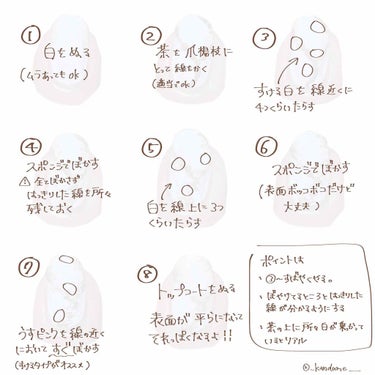 ①
白をぬる
(ムラあってもok)
②
茶を爪楊枝に
とって線をかく
(適当でok)
③
すける白を線近くに
4つくらいたらす
④
スポンジでぼかす
⚠全とばかさず
はっきりした線を所々
残しておく
⑤
白を線上に3つ
くらいたらす
⑥
スポンジでぼかす
(表面ボッコボコだけど
大丈夫)
⑦
うすピンクを線の近く
においてすぐぼかす
⑧
トップコートをぬる
表面が平らになって
それっぽくなるよ!!
ポイントは
・ぼやけてるところとはっきりした
線が分かるようにする
・茶の上に所々白が
いるとリアル
@_kandaore_